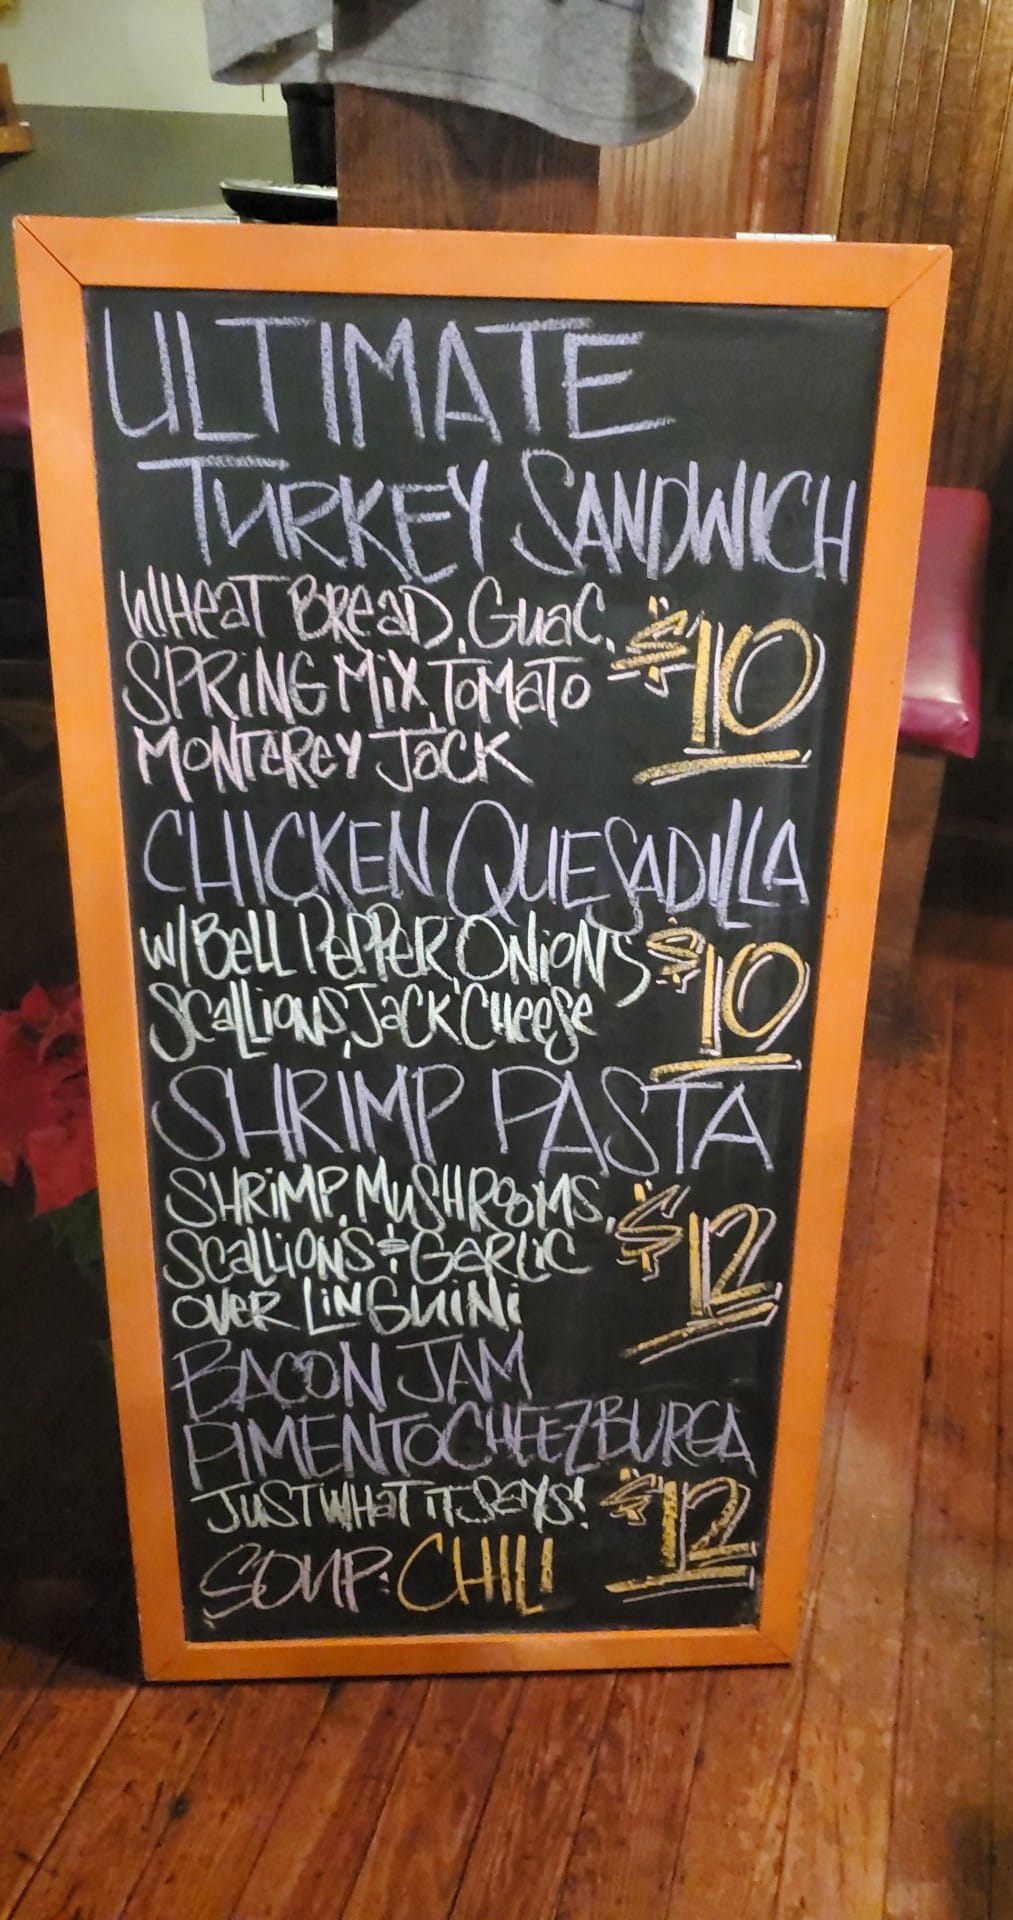 ULTIMATE
TURKEY SANDWICH
WHEAT BREAD, GUAC,
SPRING MIX, TOMATO
MONTEREY JACK
$10
CHICKEN QUESADILLA
W/ BELL PEPPER, ONIONS
SCALLIONS, JACK CHEESE
$10
SHRIMP PASTA
SHRIMP, MUSHROOMS,
SCALLIONS & GARLIC
OVER LINGUINI
$12
BACON JAM
PIMENTO CHEEZBURGA
JUST WHAT IT SAYS!
$12
SOUP: CHILI